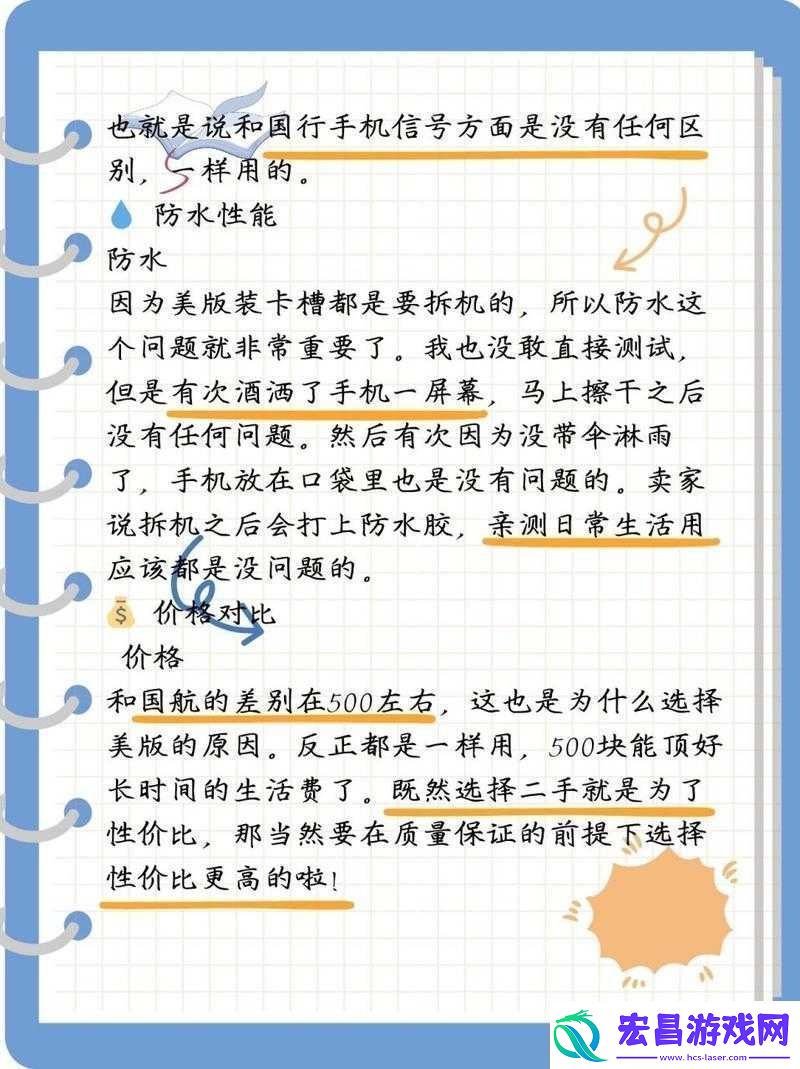 也就是说和国行手机信号方面是没有任何区
别，一样用的。
防水性能
防水
因为美版装卡槽都是要拆机的，所以防水这
个问题就非常重要了。我也没敢直接测试，
但是有次酒洒了手机一屏幕，马上擦干之后
没有任何问题。然后有次因为没带伞淋雨
了，手机放在口袋里也是没有问题的。卖家
说拆机之后会打上防水胶，亲测日常生活用
应该都是没问题的。
$ 价格对比
价格
和国航的差别在500左右，这也是为什么选择
美版的原因。反正都是一样用，500块能顶好
长时间的生活费了。既然选择二手就是为了
性价比，那当然要在质量保证的前提下选择
性价比更高的啦！
宏昌游戏网
www.hcs-laser.com